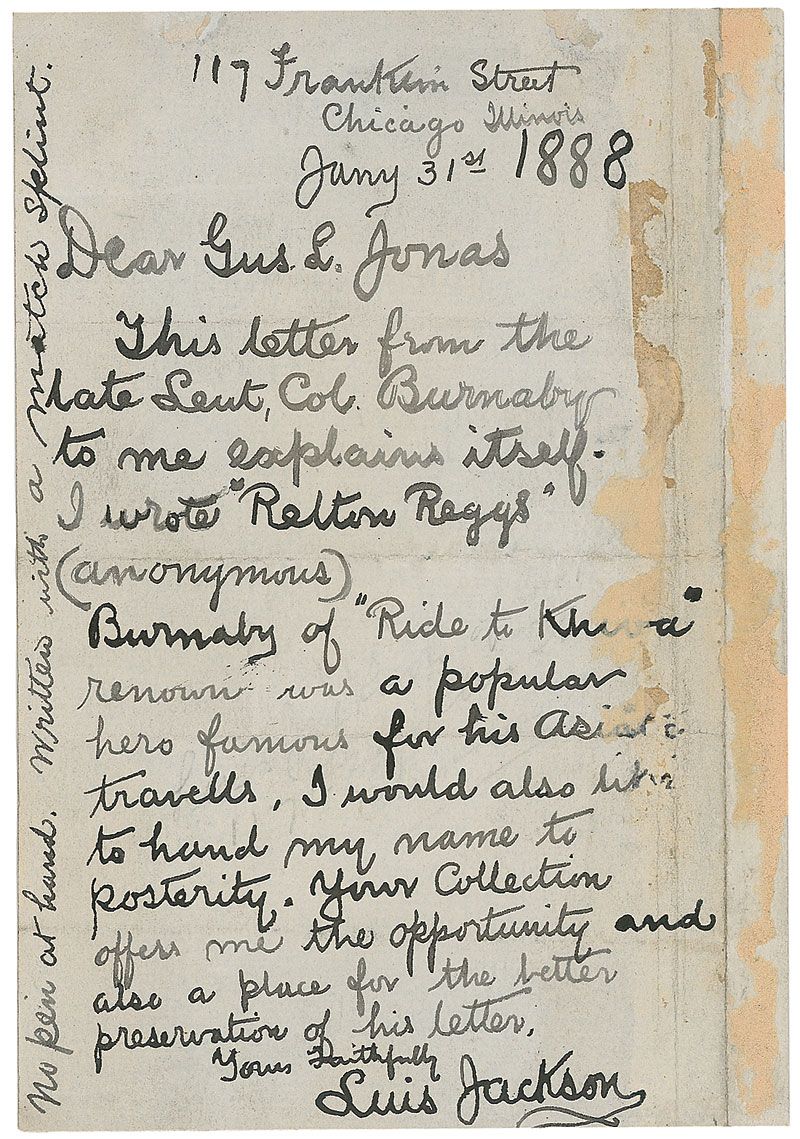 117 Franklin Street
Chicago Illinois
Jany 31st 1888
Dear Gus. L. Jonas
This letter from the
late Leut, Col. Burnaby
to me explains itself.
I wrote "Relton Reggs"
(anonymous)
Burnaby of "Ride to Khiva"
renown was a popular
hero famous for his Asiatic
travells, I would also like
to hand my name to
posterity. Your Collection
offers me the opportunity and
also a place for the better
preservation of his letter.
Yours Faithfully
Luis Jackson
No pen at hand. Written with a match splint.